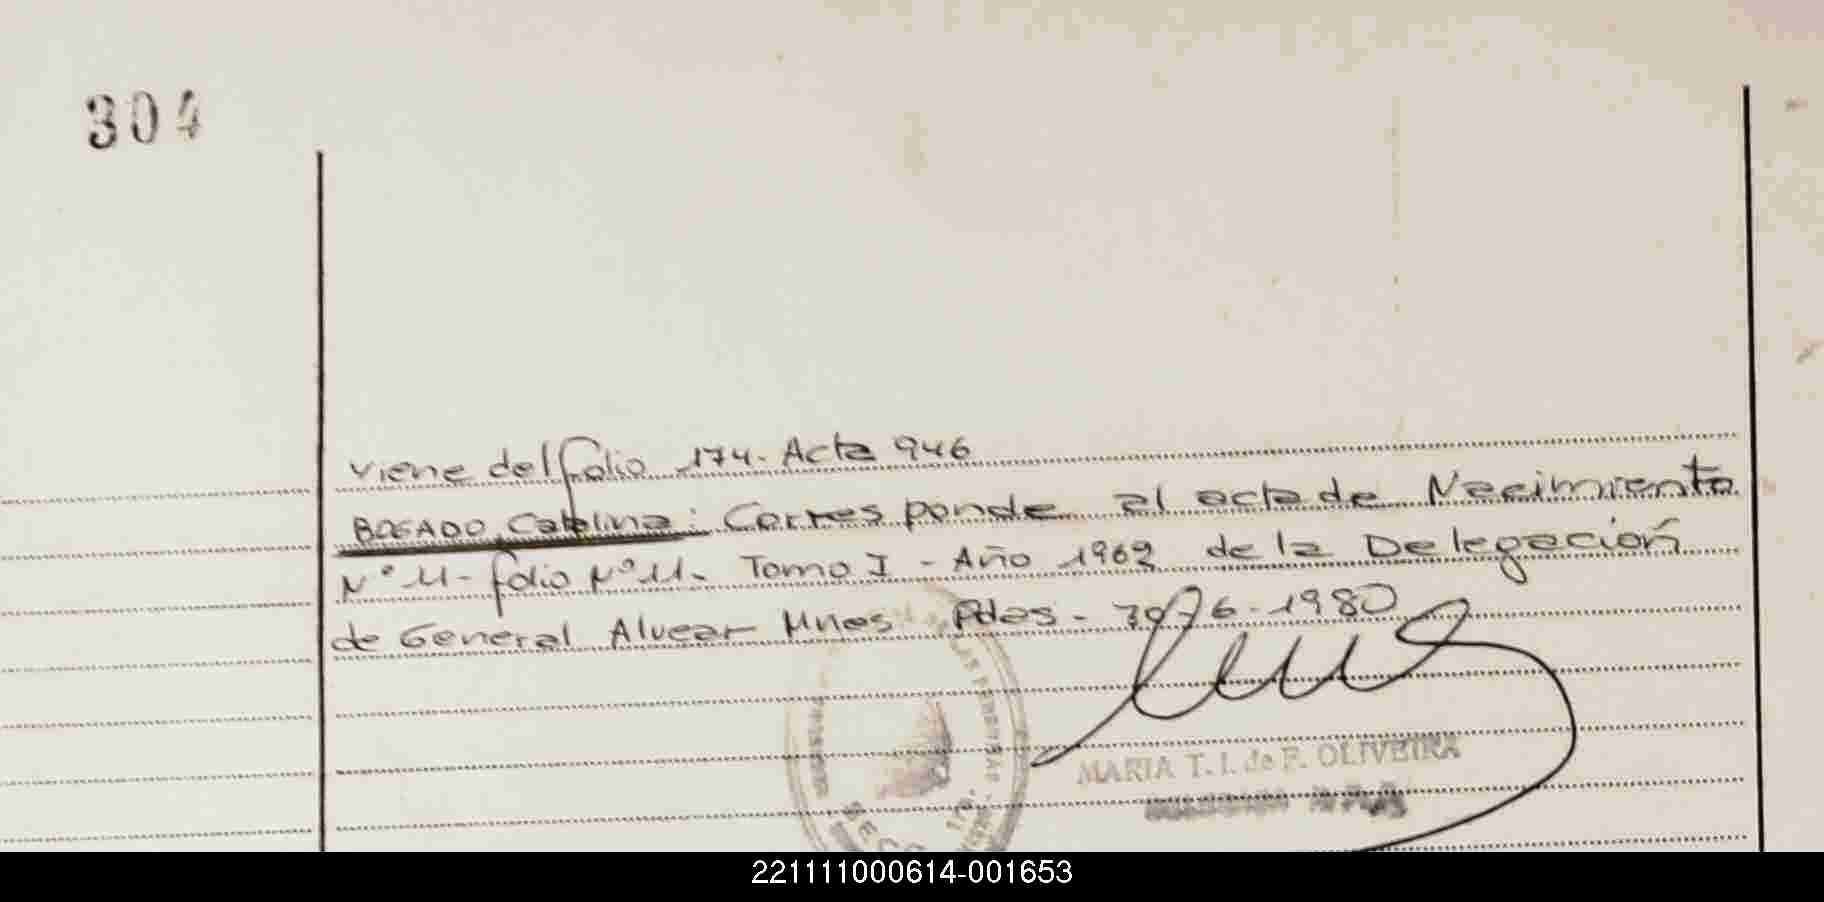 304
viene del folio 174. Acta 946
BOGADO, Catalina: Corresponde al acta de Nacimiento
N° 11 - folio N° 11. Tomo I - Año 1962 de la Delegación
de General Alvear Mnes Pdas - 30/6-1980
MARIA T. I. de F. OLIVEIRA
221111000614-001653